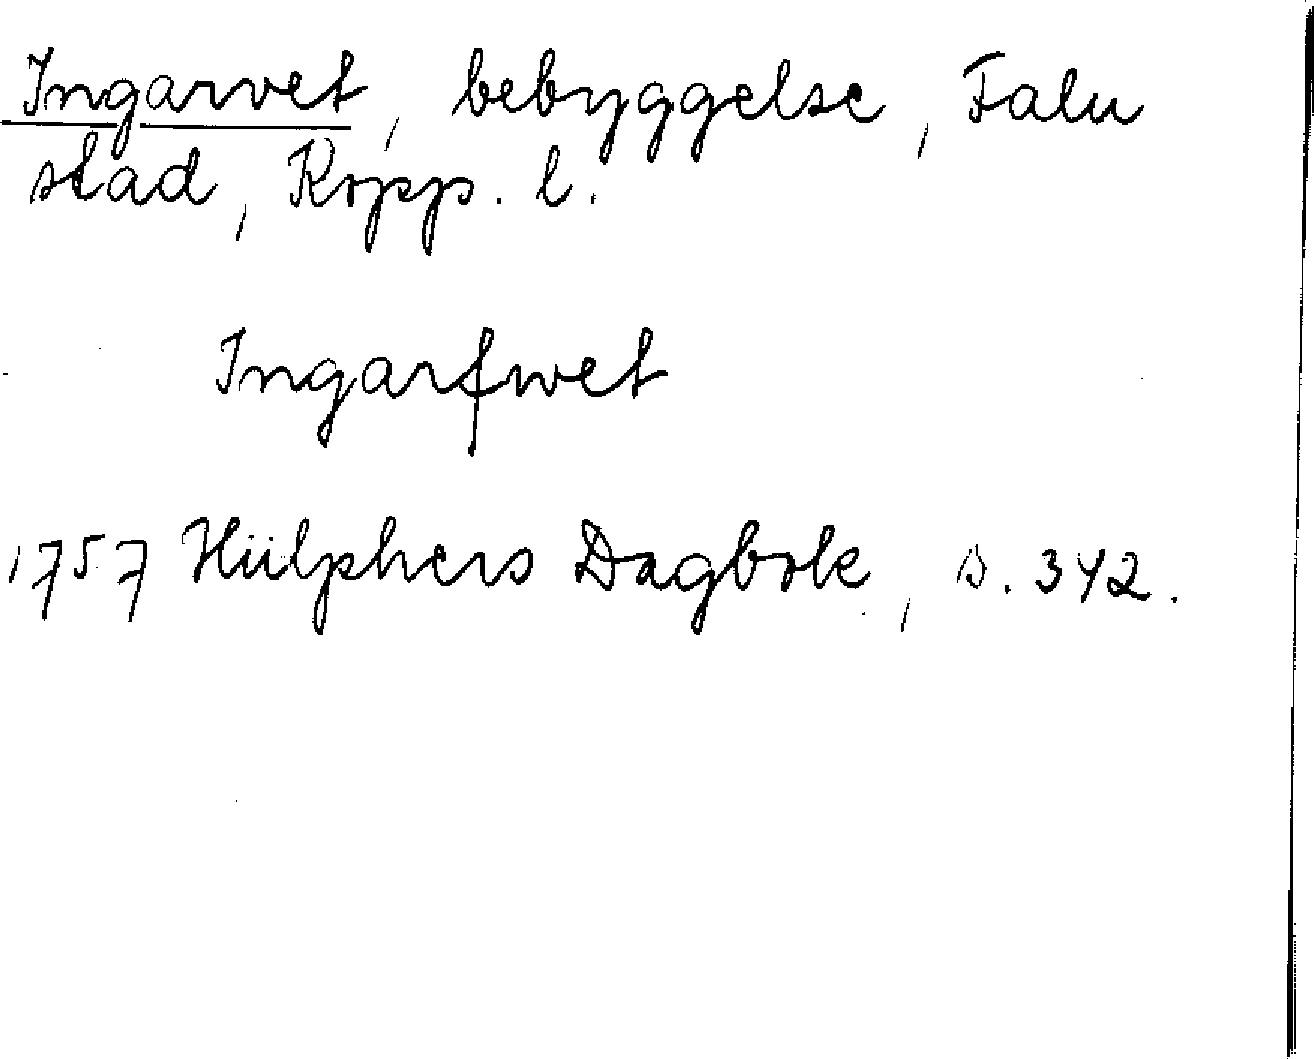 Ingarvet, bebyggelse, Falu
stad, Kopp. l.
Ingarfwet
1757 Hülphers Dagbok, s. 342.